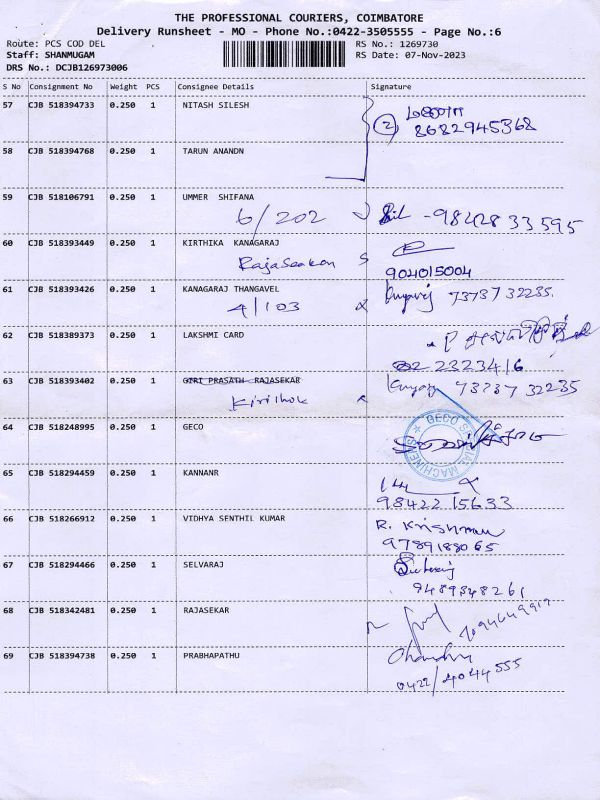 THE PROFESSIONAL COURIERS, COIMBATORE
Delivery Runsheet - MO - Phone No.:0422-3505555 - Page No.:6
Route: PCS COD DEL
Staff: SHANMUGAM
DRS No.: DCJB126973006
RS No.: 1269730
RS Date: 07-Nov-2023
S No Consignment No Weight PCS Consignee Details Signature
57 CJB 518394733 0.250 1 NITASH SILESH
2 8682945368
58 CJB 518394768 0.250 1 TARUN ANANDN
59 CJB 518106791 0.250 1 UMMER SHIFANA
6/202 -9842833595
60 CJB 518393449 0.250 1 KIRTHIKA KANAGARAJ
Rajaseakan
904015004
61 CJB 518393426 0.250 1 KANAGARAJ THANGAVEL
4/103 73737 32235
62 CJB 518389373 0.250 1 LAKSHMI CARD
2323416
63 CJB 518393402 0.250 1 GIRI PRASATH RAJASEKAR
73737 32235
64 CJB 518248995 0.250 1 GECO
65 CJB 518294459 0.250 1 KANNANR
98422 15633
66 CJB 518266912 0.250 1 VIDHYA SENTHIL KUMAR
R. Krishnan
9789188065
67 CJB 518294466 0.250 1 SELVARAJ
9489348261
68 CJB 518342481 0.250 1 RAJASEKAR
69 CJB 518394738 0.250 1 PRABHAPATHU
0422/4044555